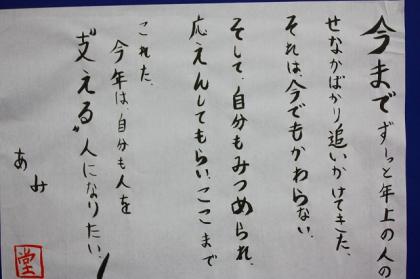 今まで ずっと年上の人の
せなかばかり追いかけてきた。
それは、今でもかわらない。
そして、自分もみつめられ、
応えんしてもらい、ここまで
これた。
今年は、自分も人を
“支える”人になりたい!
あみ
堂